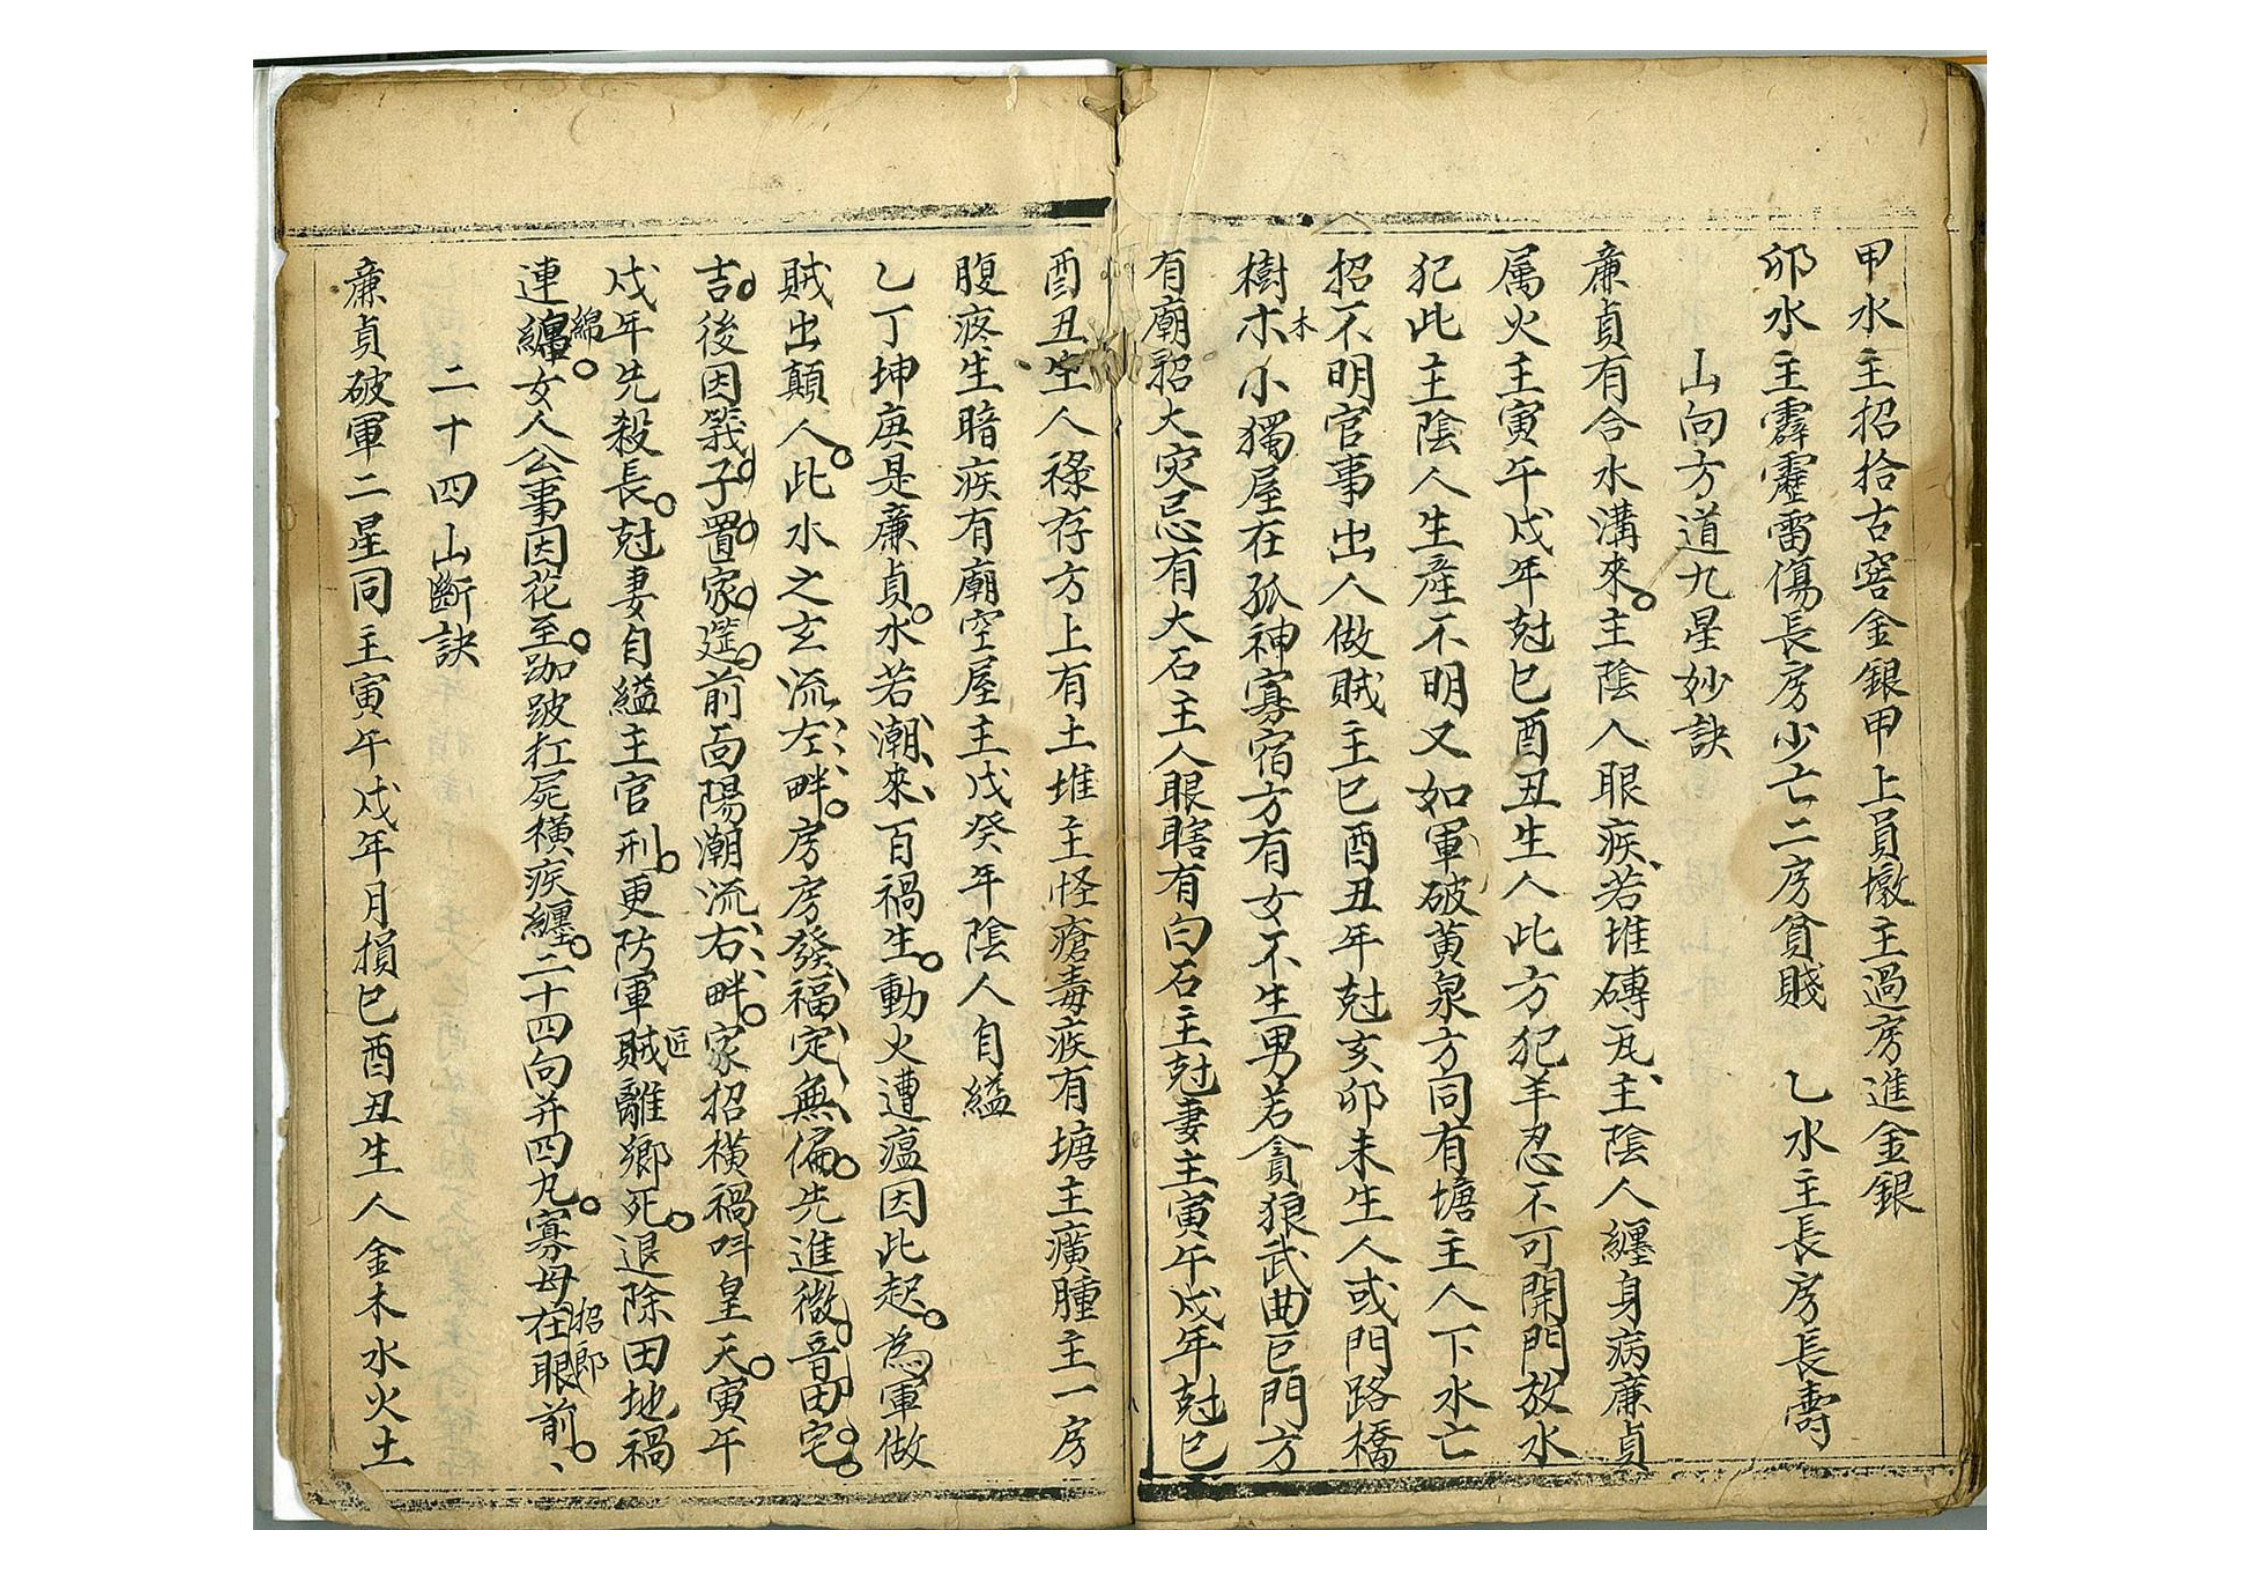 甲水主招拾古窖金銀甲上員墩主過房進金銀
卯水主霹靂雷傷長房少亡二房貧賤　乙水主長房長壽
山向方道九星妙訣
廉貞有合水溝來。主陰人眼疾、若堆磚瓦、主陰人纏身病廉貞
属火主寅午戌年尅巳酉丑生人此方犯羊忍不可開門放水
犯此主陰人生產不明又如軍破黃泉方同有塘主人下水亡
招不明官事出人做賊主巳酉丑年尅亥卯未生人或門路橋
樹木木小獨屋在孤神寡宿方有女不生男若貪狼武曲巨門方
有廟招大灾忌有大石主人眼瞎有白石主尅妻主寅午戌年尅巳
酉丑生人祿存方上有土堆主怪瘡毒疾有塘主癀腫主一房
腹疼生暗疾有廟空屋主戊癸年陰人自縊
乙丁坤庚是廉貞。水若潮、來、百禍生。動火遭瘟因此起。為軍做
賊出顛人。此水之玄流、左、畔。房房發、福、定、無、偏。先進微音田宅。
吉後因義子置家筵前面陽潮流、右、畔。家招橫禍呌皇天。寅午
戌年先殺長。尅妻自縊主官刑。更防軍賊匠離鄉死。退除田地禍
連纏綿。女人公事因花至。跏跛扛屍橫疾纏。二十四向并四九。寡母在招郎眼前。、
二十四山斷訣
廉貞破軍二星同主寅午戌年月損巳酉丑生人金木水火土